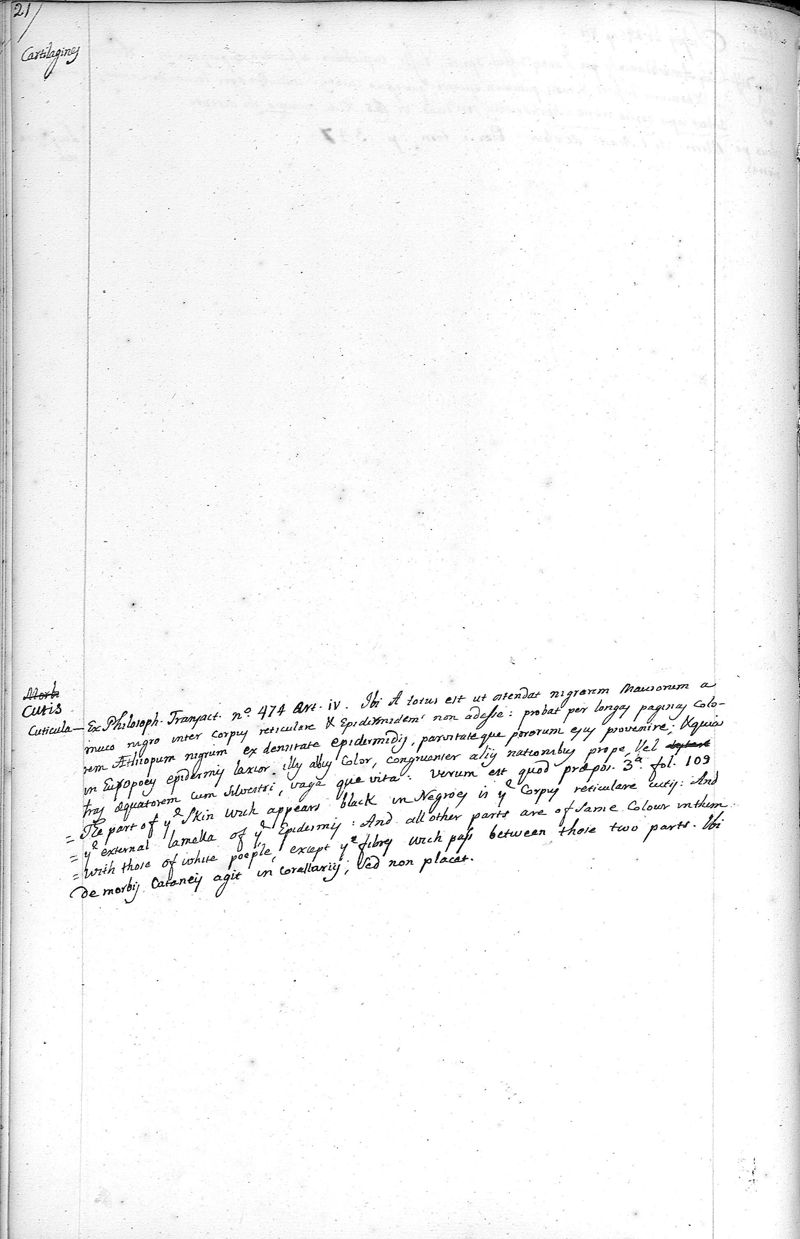 21/
Cartilagines
Morb
Cutis
Cuticula — Ex Philosoph. Transact. nº. 474 Art. iv. Ibi A totus est ut ostendat nigrorem Maurorum a
muco nigro inter corpus reticulare & Epidermidem non adesse: probat per longas paginas Colo-
rem Æthiopum nigrum ex densitate epidermidis, parvitateque pororum ejus provenire; & quia
in Europoeis epidermis laxior, illis albus Color, congruenter aliis nationibus prope, Vel
tras æquatorem cum silvestri, vaga que vita: verum est quod præpos. 3ª. fol. 109
= The part of yᵉ Skin wich appears black in Negroes is yᵉ Corpus reticulare cutis: And
= yᵉ external lamella of yᵉ Epidermis: And all other parts are of same Colour in them
= with those of white poeple, except yᵉ fibres wich pass between those two parts. Ibi
De morbis Cutaneis agit in corollariis; sed non placet.